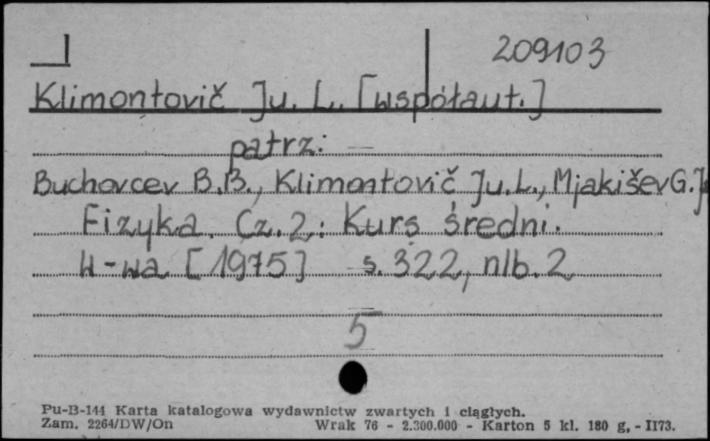 209103
Klimontovič Ju. L. [współaut.]
patrz:
Buchovcev B.B., Klimontovič Ju.L., Mjakišev G.J
Fizyka. Cz. 2: Kurs średni.
W-wa [1975] s. 322, nlb. 2
5
Pu-B-144 Karta katalogowa wydawnictw zwartych i ciągłych.
Zam. 2264/DW/On Wrak 76 - 2.300.000 - Karton 5 kl. 180 g, - II73.